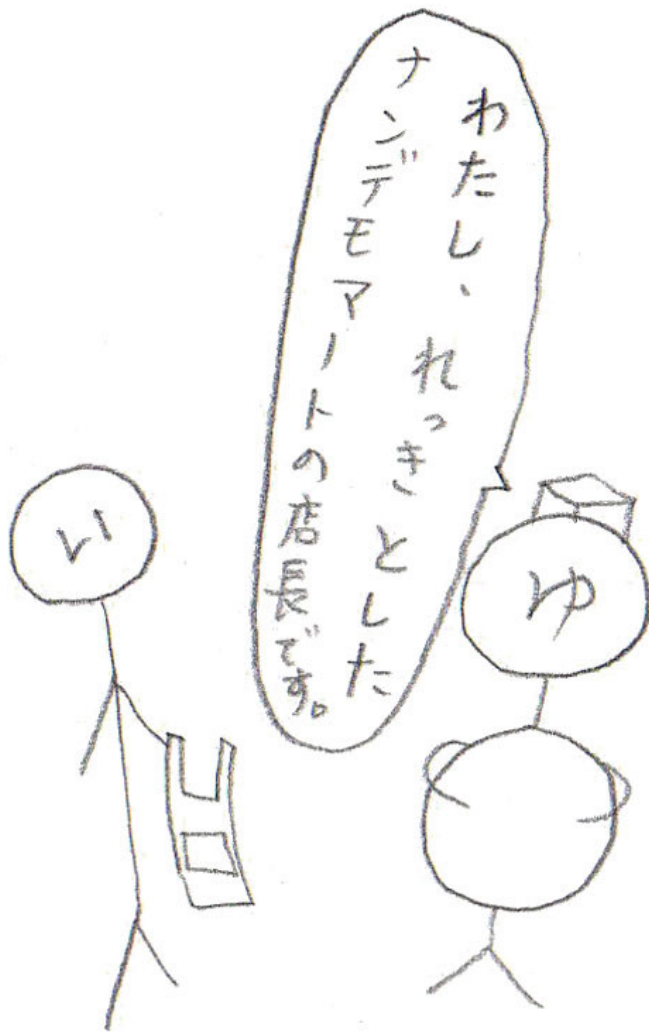 わたし、れっきとした
ナンデモマートの店長です。
い
ゆ